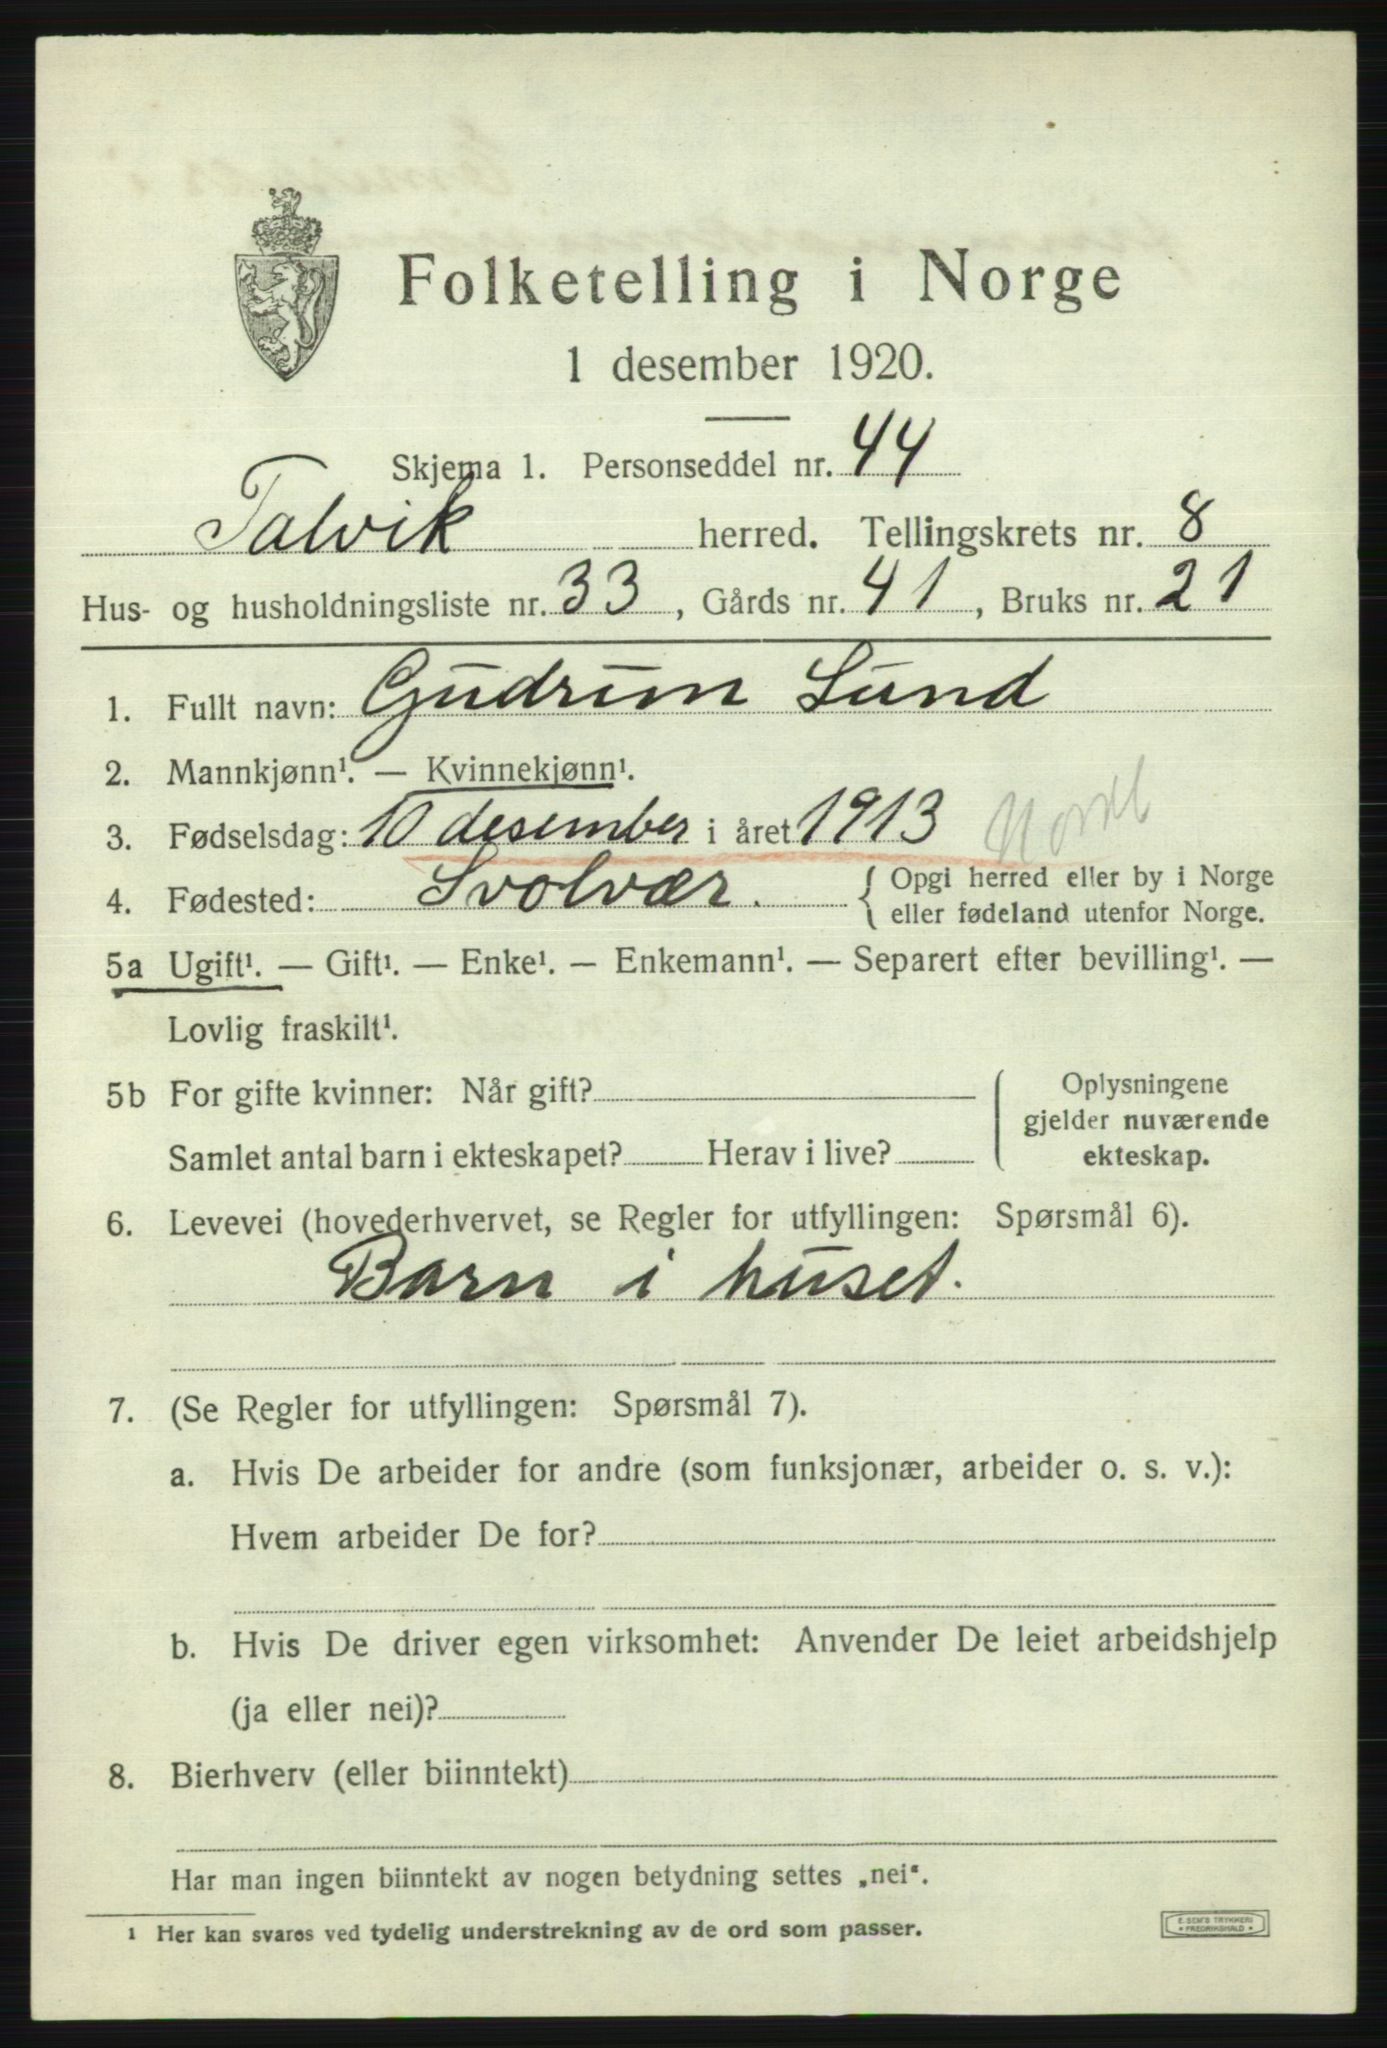 Folketelling i Norge
1 desember 1920.
Skjema 1. Personseddel nr. 44
Talvik herred. Tellingskrets nr. 8
Hus- og husholdningsliste nr. 33, Gårds nr. 41, Bruks nr. 21
1. Fullt navn: Gudrun Lund
2. Mannkjønn¹. — Kvinnekjønn¹.
3. Fødselsdag: 10 desember i året 1913
4. Fødested: Svolvær. { Opgi herred eller by i Norge
eller fødeland utenfor Norge.
5a Ugift¹. — Gift¹. — Enke¹. — Enkemann¹. — Separert efter bevilling¹. —
Lovlig fraskilt¹.
5b For gifte kvinner: Når gift?
Samlet antal barn i ekteskapet? Herav i live?
Oplysningene
gjelder nuværende
ekteskap.
6. Levevei (hovederhvervet, se Regler for utfyllingen: Spørsmål 6).
Barn i huset.
7. (Se Regler for utfyllingen: Spørsmål 7).
a. Hvis De arbeider for andre (som funksjonær, arbeider o. s. v.):
Hvem arbeider De for?
b. Hvis De driver egen virksomhet: Anvender De leiet arbeidshjelp
(ja eller nei)?
8. Bierhverv (eller biinntekt)
Har man ingen biinntekt av nogen betydning settes „nei“.
¹ Her kan svares ved tydelig understrekning av de ord som passer.
E. SEM'S TRYKKERI
FREDRIKSHALD